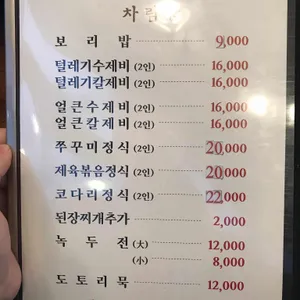 차림
보리밥 9,000
털레기수제비 (2인) 16,000
털레기칼제비 (2인) 16,000
얼큰수제비 (2인) 16,000
얼큰칼제비 (2인) 16,000
쭈꾸미정식 (2인) 20,000
제육볶음정식 (2인) 20,000
코다리정식 (2인) 22,000
된장찌개추가 2,000
녹두전 (大) 12,000
(小) 8,000
도토리묵 12,000